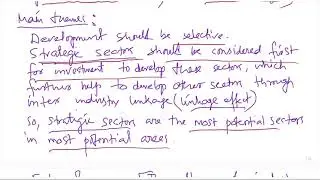 Main themes:
Development should be selective.
Strategic sector should be considered first
for investment to develop these sector, which
further help to develop other sector through
inter industry linkage (linkage effect)
so, strategic sectors are the most potential sectors
in most potential areas